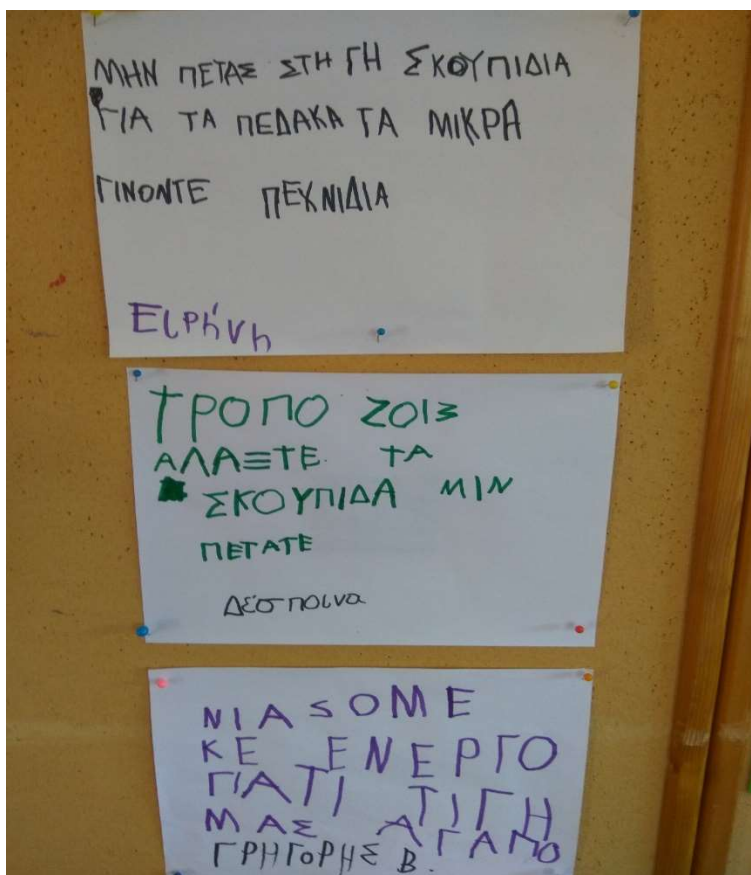 ΜΗΝ ΠΕΤΑΣ ΣΤΗ ΓΗ ΣΚΟΥΠΙΔΙΑ
ΓΙΑ ΤΑ ΠΕΔΑΚΑ ΤΑ ΜΙΚΡΑ
ΓΙΝΟΝΤΕ ΠΕΧΝΙΔΙΑ
Ειρήνη
ΤΡΟΠΟ ΖΟΙΣ
ΑΛΑΞΤΕ ΤΑ
ΣΚΟΥΠΙΔΑ ΜΙΝ
ΠΕΤΑΤΕ
Δέσποινα
ΝΙΑSΟΜΕ
ΚΕ ΕΝΕΡΓΟ
ΓΙΑΤΙ ΤΙ ΓΗ
ΜΑΣ ΑΓΑΠΟ
ΓΡΗΓΟΡΗΣ Β.